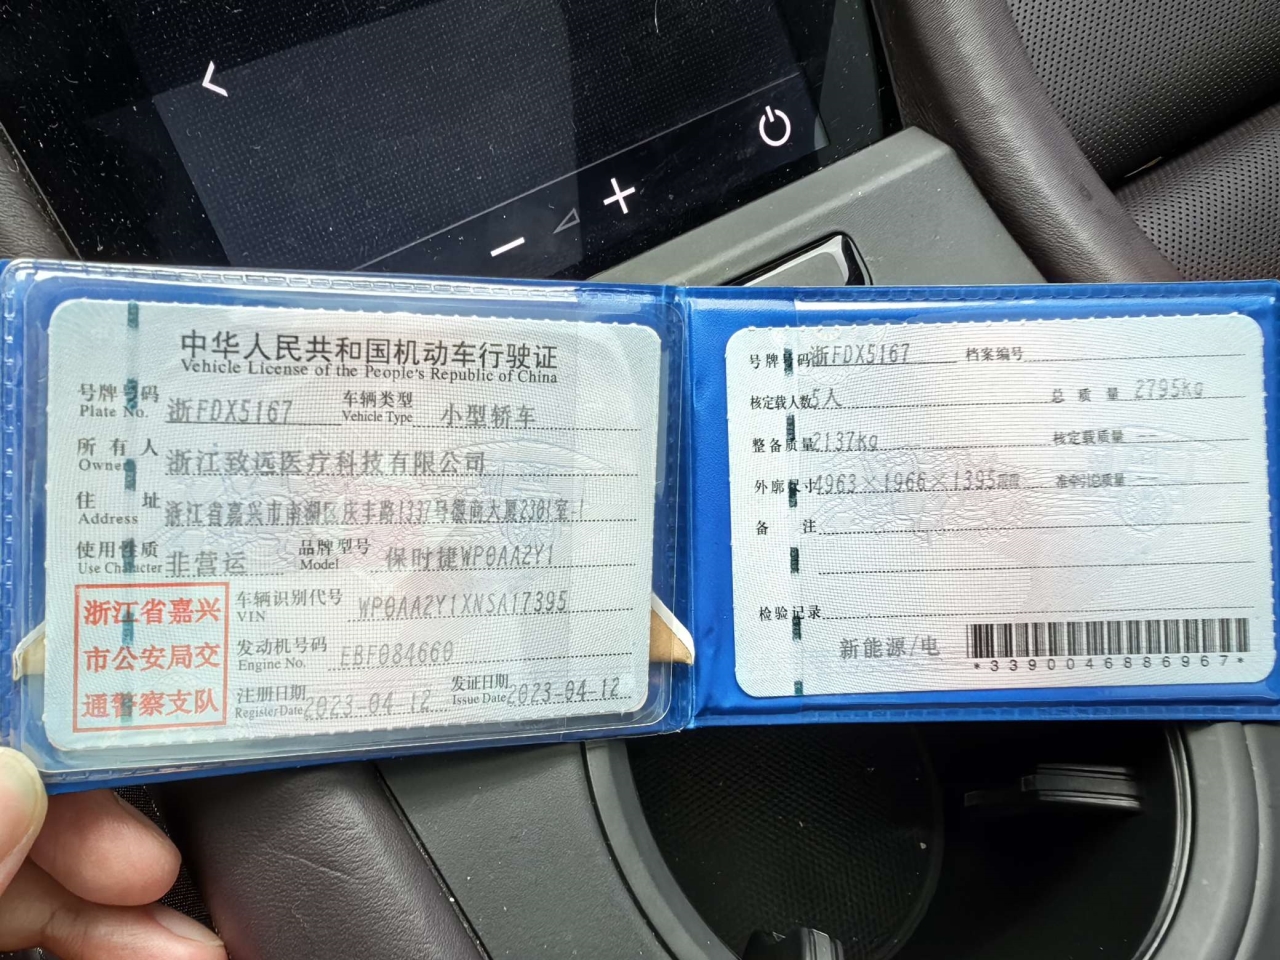 中华人民共和国机动车行驶证
Vehicle License of the People's Republic of China
号牌号码 浙FDX5167 车辆类型 小型轿车
Plate No. Vehicle Type
所有人 浙江致远医疗科技有限公司
Owner
住址 浙江省嘉兴市南湖区庆丰路1337号徽商大厦2301室-1
Address
使用性质 非营运 品牌型号 保时捷WP0AA2Y1
Use Character Model
车辆识别代号 WP0AA2Y1XNSA17395
VIN
发动机号码 EBF084660
Engine No.
注册日期 2023-04-12 发证日期 2023-04-12
Register Date Issue Date
浙江省嘉兴
市公安局交
通警察支队
号牌号码 浙FDX5167 档案编号
核定载人数 5人 总质量 2795kg
整备质量 2137kg 核定载质量 --
外廓尺寸 4963×1966×1395mm 准牵引总质量 --
备注
检验记录
新能源/电
*3390046886967*